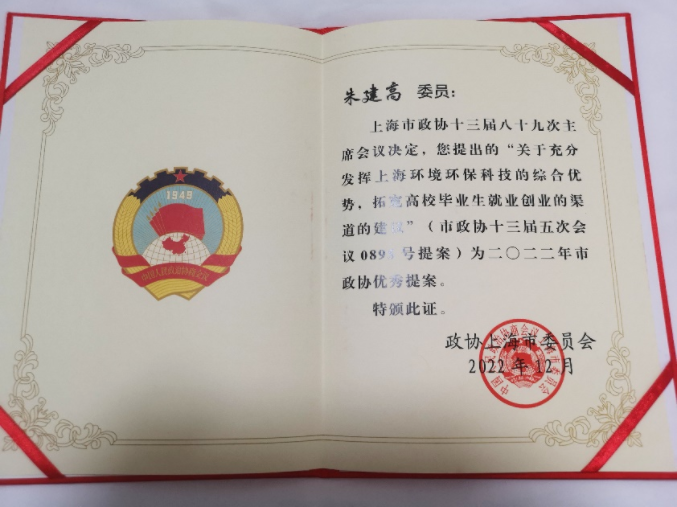 1949
中国人民政治协商会议
朱建高 委员：
上海市政协十三届八十九次主
席会议决定，您提出的“关于充分
发挥上海环境环保科技的综合优
势，拓宽高校毕业生就业创业的渠
道的建议”（市政协十三届五次会
议089 号提案）为二〇二二年市
政协优秀提案。
特颁此证。
政协上海市委员会
2022 年 12 月